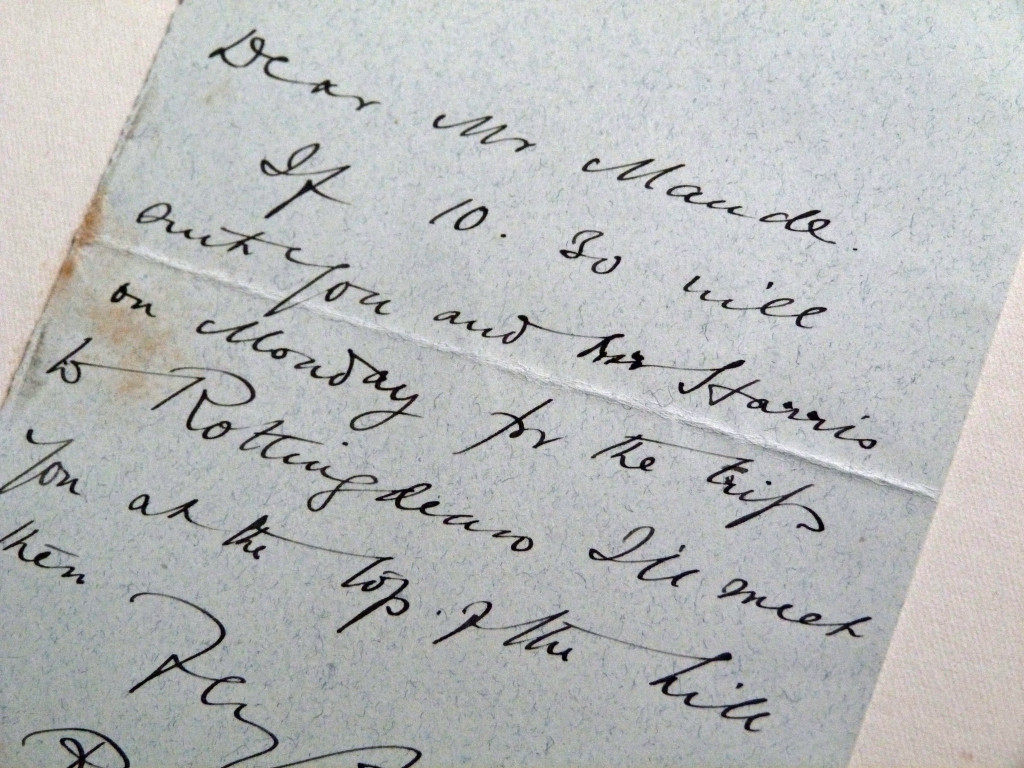 Dear Mr Maude.
If 10.30 will
suit you and Mr Harris
on Monday for the trip
to Rottingdean I'll meet
you at the top of the hill
then